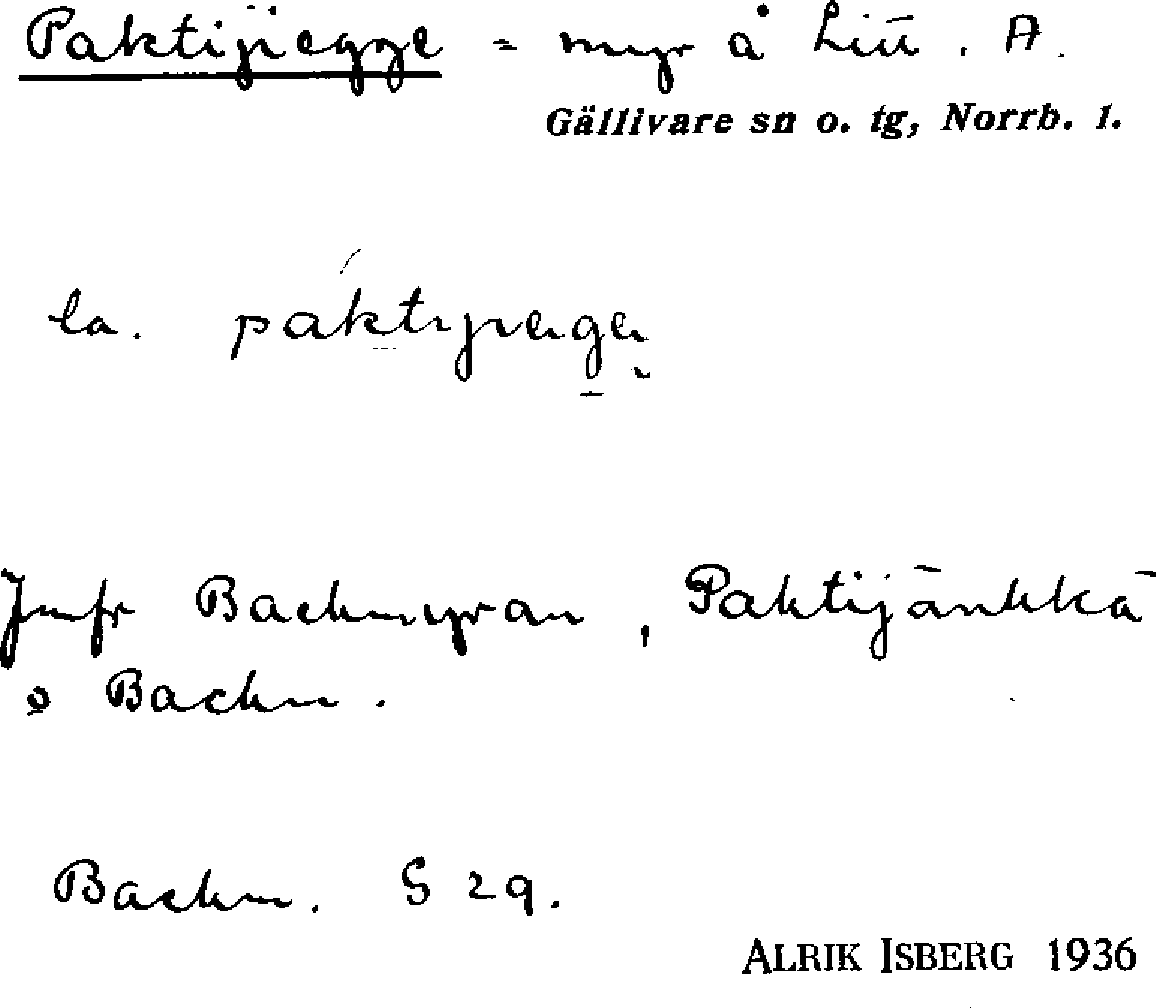 Paktijiegge = myr å Liū. A.
Gällivare sn o. tg, Norrb. l.
la.
Jmfr Backmyran, Paktijänkkä
o Backm.
Backm. S 29.
ALRIK ISBERG 1936